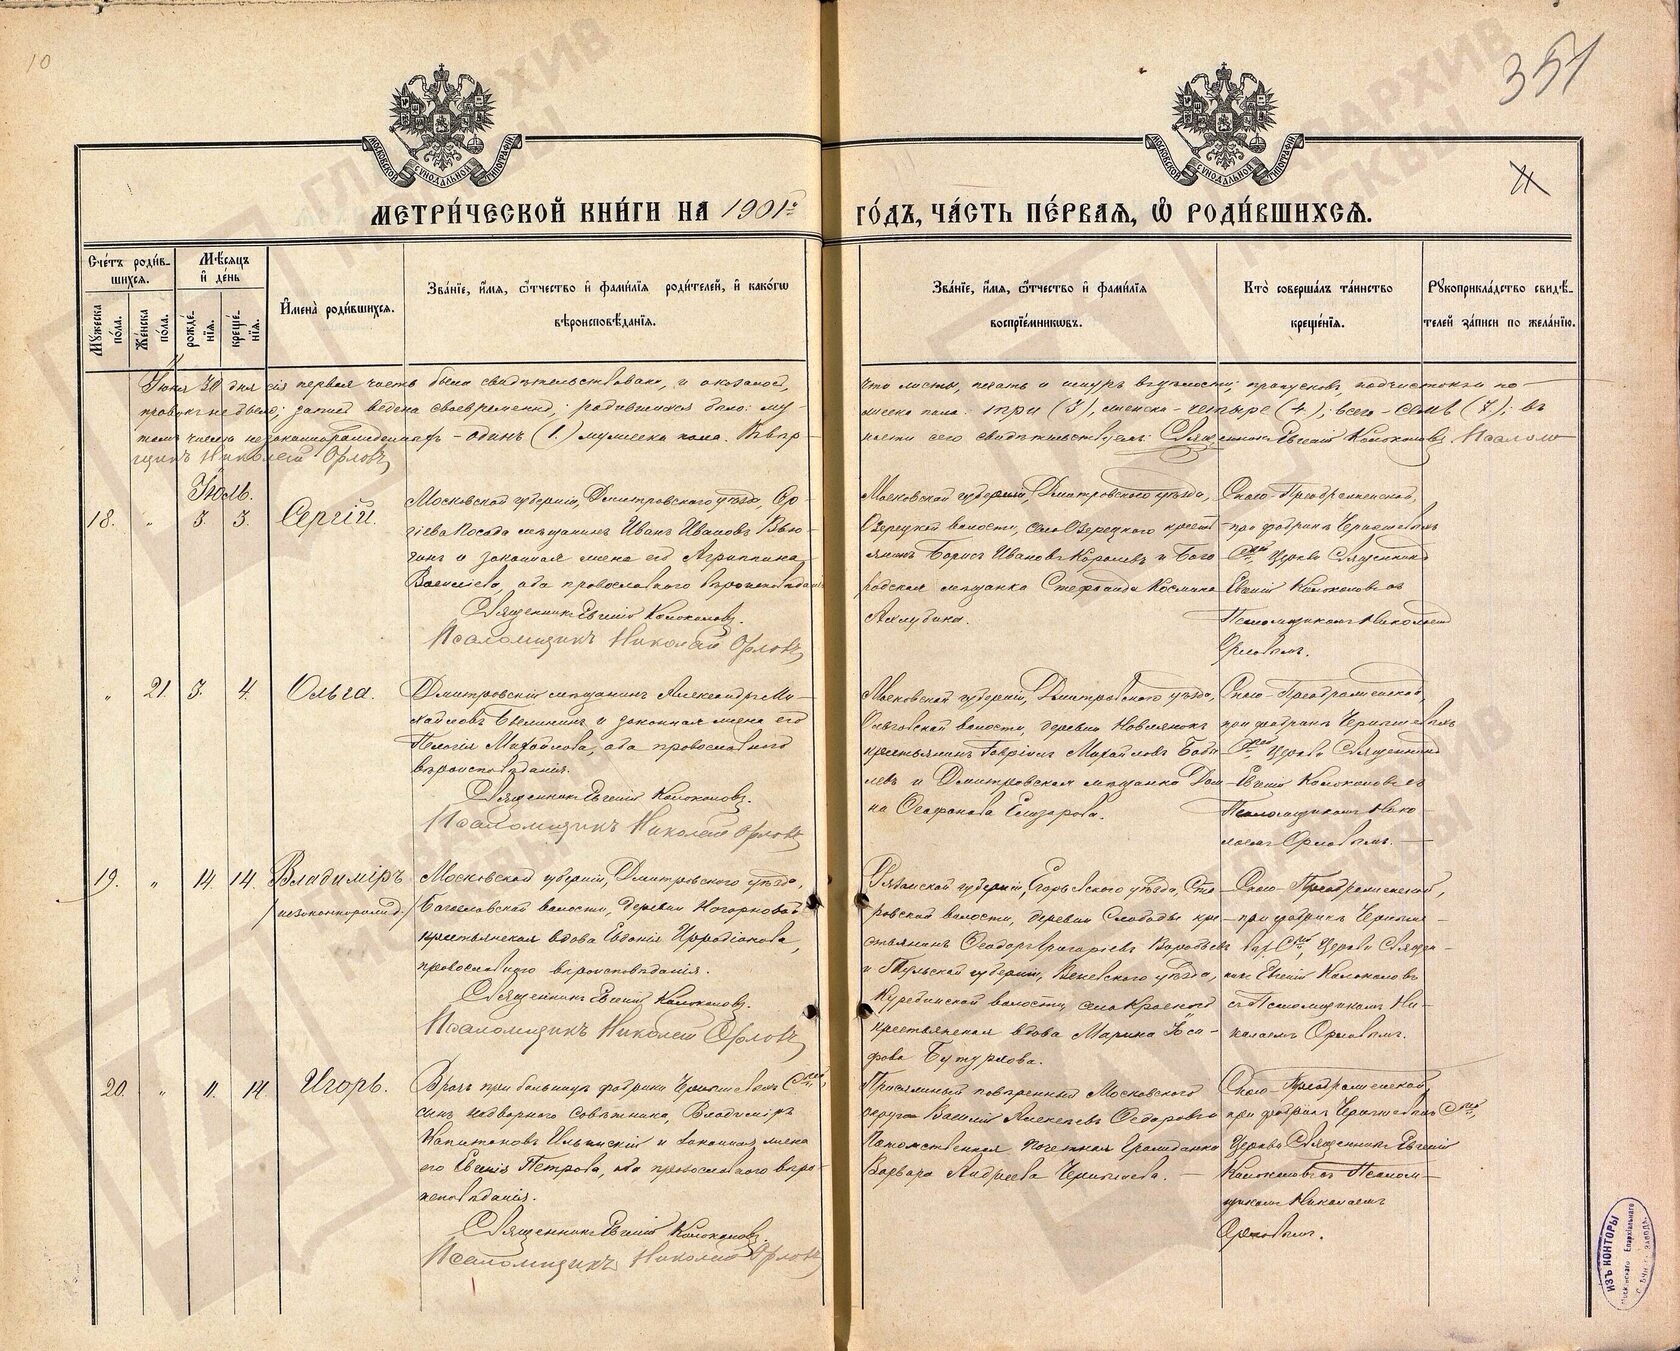 10
351
11
МОСКОВСКОЙ СѴНОДАЛЬНОЙ ТИПОГРАФІИ
МОСКОВСКОЙ СѴНОДАЛЬНОЙ ТИПОГРАФІИ
МЕТРИ́ЧЕСКОЙ КНИ́ГИ НА 1901й ГО́ДЪ, ЧА́СТЬ ПЕ́РВАЯ, Ѡ҆ РОДИ́ВШИХСЯ.
Сче́тъ роди́вшихся.
Му́жеска по́ла.
Же́нска по́ла.
Мѣ́сяцъ и҆ де́нь
рожде́нія.
креще́нія.
И҆мена̀ роди́вшихся.
Зва́ніе, и҆́мя, ѻ҆́тчество и҆ фами́лія роди́телей, и҆ како́гѡ
вѣроисповѣ́данія.
Зва́ніе, и҆́мя, ѻ҆́тчество и҆ фами́лія
воспріе́мниковъ.
Кто̀ соверша́лъ та́инство
креще́нія.
Рꙋкоприкла́дство свидѣ́-
телей за́писи по жела́нію.
Іюня 30 дня сія первая часть была свидѣтельствована, и оказалось, что листы, печать и шнуръ въ цѣлости; пропусковъ, подчистокъ и по-
правокъ не было; запись ведена своевременно; родившихся было: мужеска пола: три (3), женска - четыре (4); всего - семь (7); въ
томъ числѣ незаконнорожденныхъ - одинъ (1) мужеска пола. Въ вѣрности сего свидѣтельствуемъ: Священникъ Евгеній Колоколовъ. Псалом-
щикъ Николай Орловъ
Іюль.
18. " 3. 3. Сергій.
Московской губерніи, Дмитровскаго уѣзда, Сер-
гіева Посада мѣщанинъ Иванъ Ивановъ
и законная жена его Агриппина
Васильева, оба православнаго вѣроисповѣданія
Священникъ Евгеній Колоколовъ.
Псаломщикъ Николай Орловъ
Московской губерніи, Дмитровскаго уѣзда,
Озерецкой волости, села Озерецкаго кресть-
янинъ Борисъ Ивановъ Королевъ и Бого-
родская мѣщанка Стефанида Космина
Спасо-Преображенской,
при фабрикѣ Чернышевыхъ
церкви Священникъ
Евгеній Колоколовъ съ
Псаломщикомъ Николаемъ
Орловымъ.
" 21. 3. 4. Ольга.
Дмитровскій мѣщанинъ Александръ Ми-
хайловъ и законная жена его
Пелагія Михайлова, оба православнаго
вѣроисповѣданія.
Священникъ Евгеній Колоколовъ.
Псаломщикъ Николай Орловъ
Московской губерніи, Дмитровскаго уѣзда,
Ольговской волости, деревни Новлянокъ
крестьянинъ Гавріилъ Михайловъ Бобы-
левъ и Дмитровская мѣщанка Дом-
на Ѳеофанова Елизарова.
Спасо-Преображенской,
при фабрикѣ Чернышевыхъ
церкви Священникъ
Евгеній Колоколовъ съ
Псаломщикомъ Нико-
лаемъ Орловымъ.
19. " 14. 14. Владиміръ
/незаконнорожд./
Московской губерніи, Дмитровскаго уѣзда,
Богословской волости, деревни Ногорновой
крестьянская вдова Евдокія Иродіонова,
православнаго вѣроисповѣданія.
Священникъ Евгеній Колоколовъ.
Псаломщикъ Николай Орловъ
Рязанской губерніи, Егорьевскаго уѣзда,
волости, деревни Слободы кре-
стьянинъ Ѳеодоръ Григорьевъ Воробьевъ
и Тульской губерніи, Веневскаго уѣзда,
волости, села Краснаго
крестьянская вдова Марина Іоси-
фова Бутурлова.
Спасо-Преображенской,
при фабрикѣ Черныше-
выхъ церкви Священ-
никъ Евгеній Колоколовъ
съ Псаломщикомъ Ни-
колаемъ Орловымъ.
20. " 11. 14. Игорь.
Врачъ при больницѣ фабрики Чернышевыхъ
сынъ надворнаго совѣтника, Владиміръ
Капитоновъ Ильинскій и законная жена
его Евгенія Петрова, оба православнаго вѣро-
исповѣданія.
Священникъ Евгеній Колоколовъ.
Псаломщикъ Николай Орловъ
Присяжный повѣренный Московскаго
округа Василій Алексѣевъ Ѳедоровъ и
Потомственная почетная гражданка
Варвара Андреева Чернышева.
Спасо-Преображенской,
при фабрикѣ Чернышевыхъ
церкви Священникъ Евгеній
Колоколовъ съ Псалом-
щикомъ Николаемъ
Орловымъ.
ИЗЪ КОНТОРЫ
Московскаго Епархіальнаго
СВѢЧН. ЗАВОДА
ГЛАВАРХИВ
МОСКВЫ